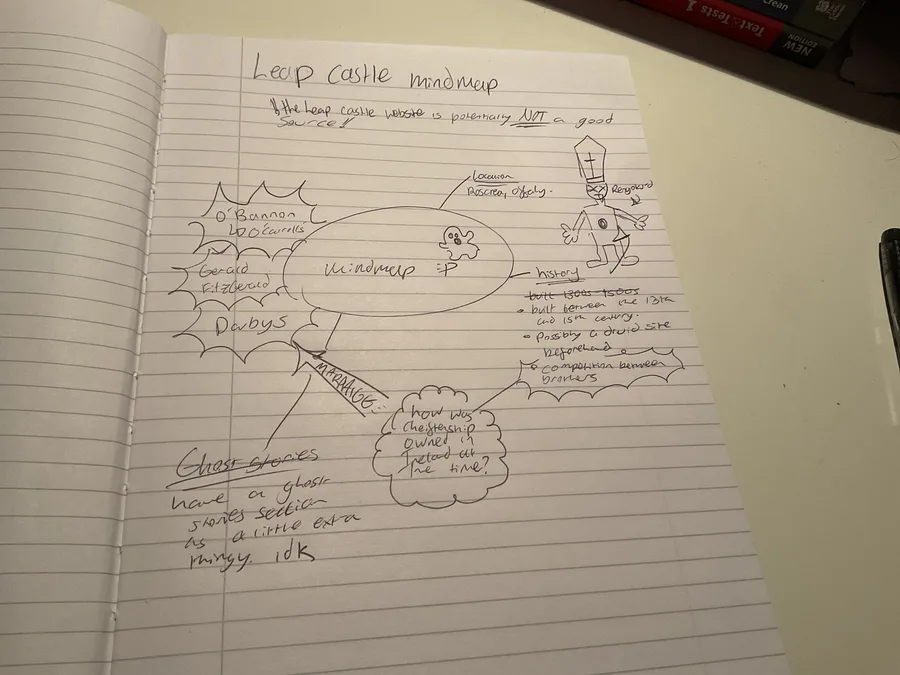 Leap castle mindmap
the Leap castle website is potentially NOT a good
source!!
Location
Roscrea, Offaly.
O'Bannon
O'Carrolls
Gerald
FitzGerald
Darbys
mindmap :P
history
built 1300s - 1500s
• built between the 13th
and 15th century.
• Possibly a druid site
beforehand
• competition between
brothers
MARRIAGE
how was
owned in
Ireland at
the time?
Ghost stories
have a ghost
stories section
as a little extra
thingy. idk
Text & Tests 1
NEW
EDITION